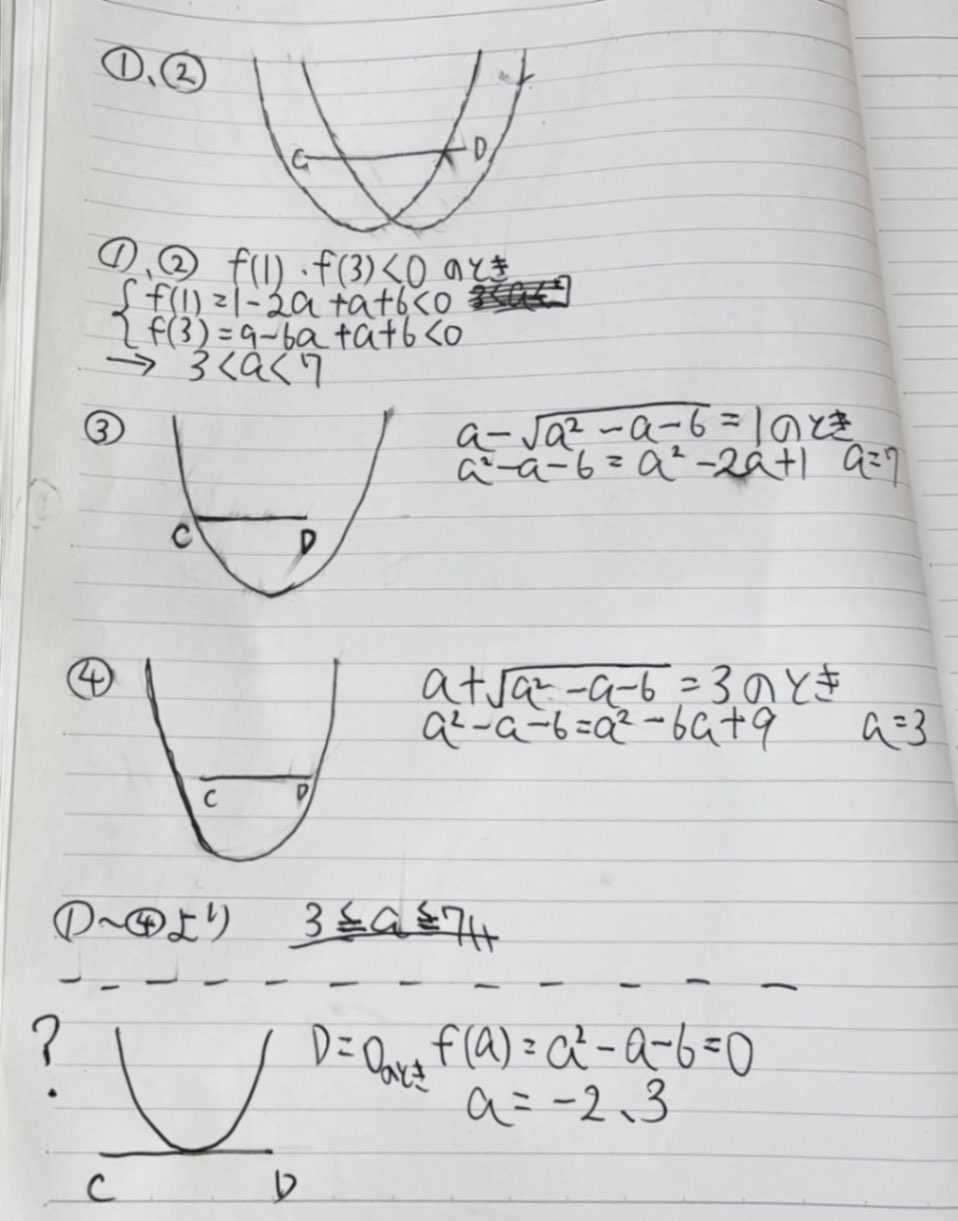 ①、②
C D
①、② f(1)・f(3)<0 のとき
f(1)=1-2a+a+6<0
f(3)=9-6a+a+6<0
→ 3<a<7
③
a-√a²-a-6=1のとき
a²-a-6=a²-2a+1 a=7
C D
④
a+√a²-a-6=3のとき
a²-a-6=a²-6a+9 a=3
C D
①~④より 3≦a≦7
? D=0のとき f(a)=a²-a-6=0
a=-2、3
C D